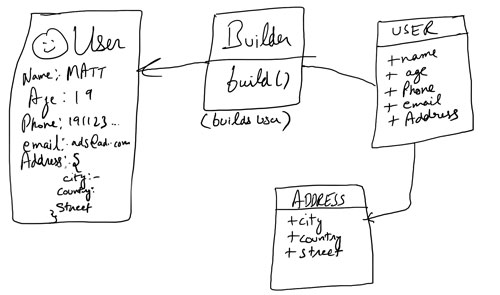 User
Name: MATT
Age: 19
Phone: 191123...
email: ads@ad.com
Address: {
city:-
country:
Street
}
Builder
build()
(builds user)
USER
+name
+ age
+ Phone
+ email
+ Address
ADDRESS
+city
+country
+street